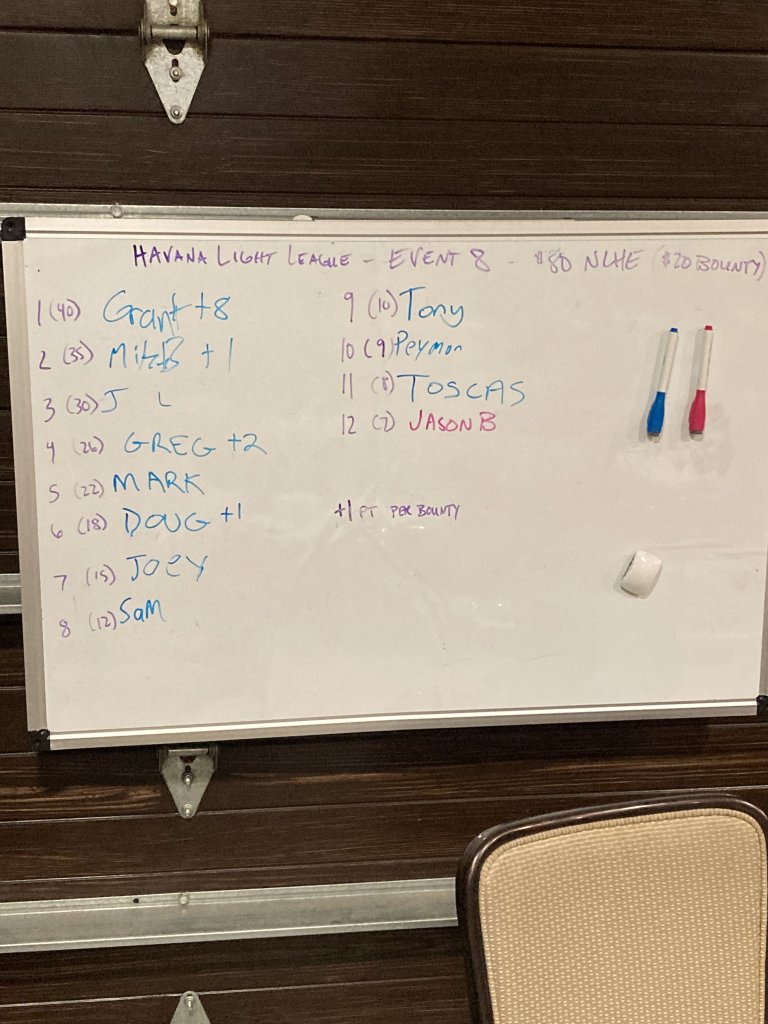 HAVANA LIGHT LEAGUE - EVENT 8 - $80 NLHE ($20 BOUNTY)
1 (40) Grant +8
2 (35) MitchB +1
3 (30) J L
4 (26) GREG +2
5 (22) MARK
6 (18) DOUG +1
7 (15) JOEY
8 (12) SaM
9 (10) Tony
10 (9) Peymon
11 (8) TOSCAS
12 (7) JASON B
+1 PT PER BOUNTY